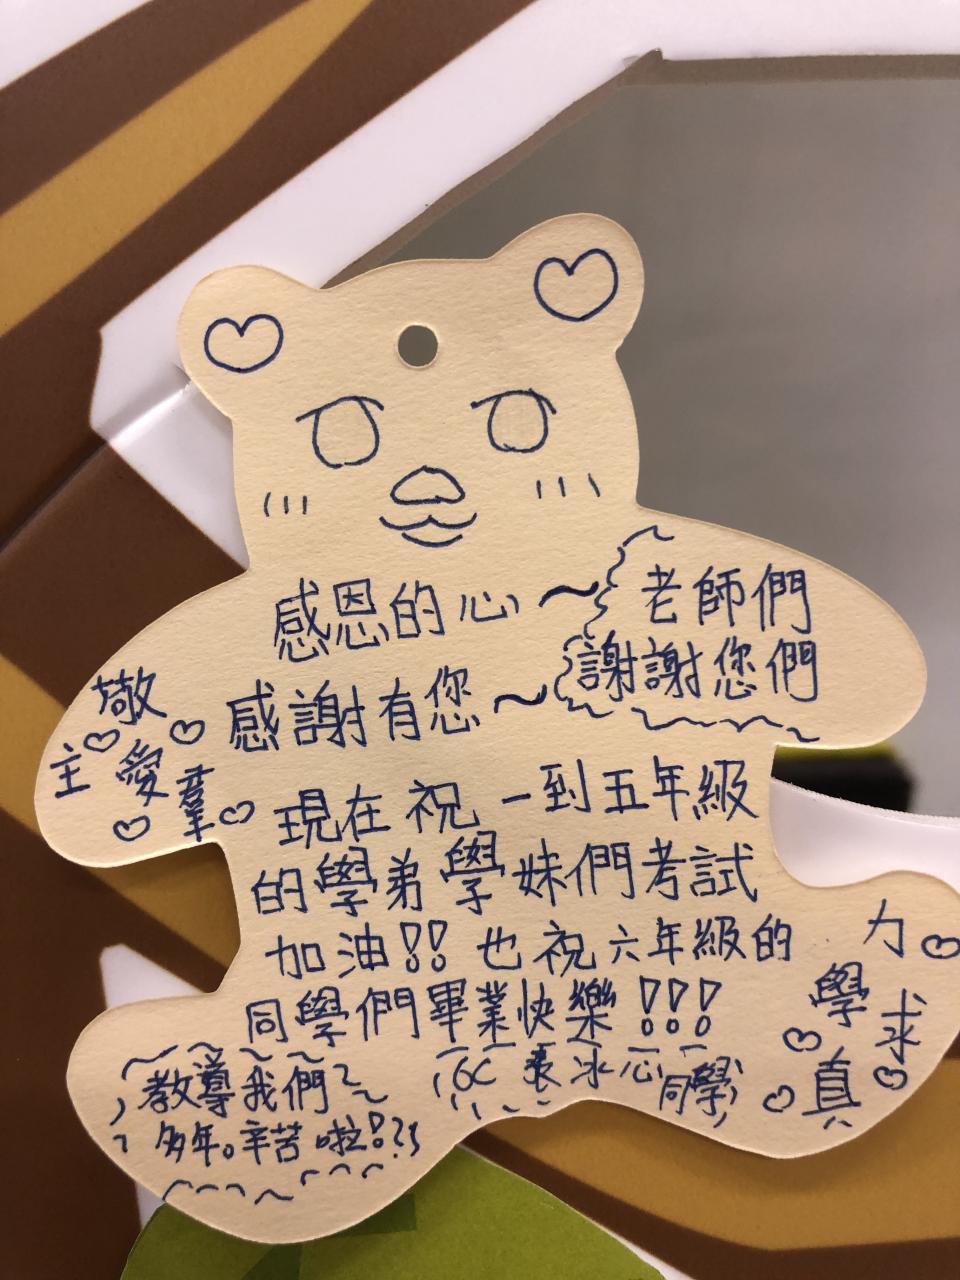 感恩的心~
老師們
謝謝您們
感謝有您~
敬
主愛羣
現在祝一到五年級
的學弟學妹們考試
加油!! 也祝六年級的
同學們畢業快樂!!!
6C 張冰心同學
教導我們
多年。辛苦啦!
力
學求
真